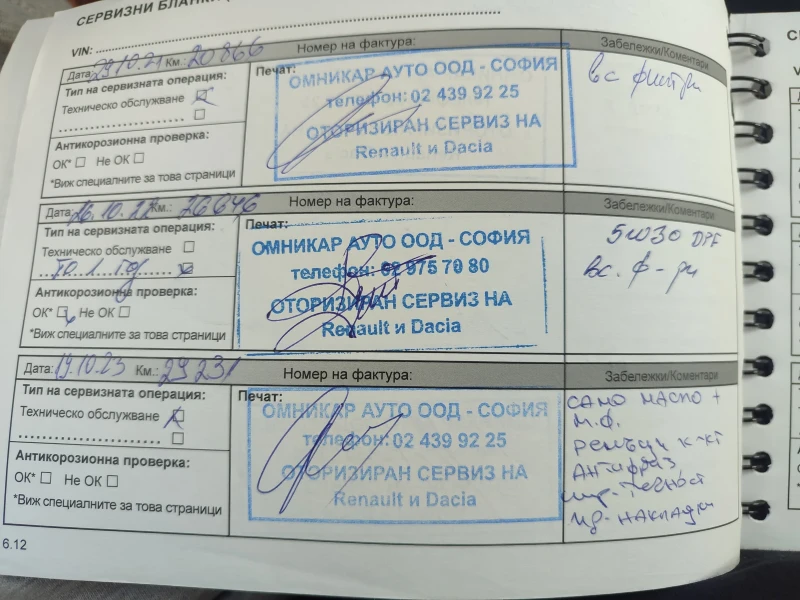 СЕРВИЗНИ БЛАНКИ
VIN:
Номер на фактура:
Забележки/Коментари
Дата: 29.10.21 Км.: 20866
Печат:
Тип на сервизната операция:
Техническо обслужване
Антикорозионна проверка:
ОК* Не ОК
*Виж специалните за това страници
ОМНИКАР АУТО ООД - СОФИЯ
телефон: 02 439 92 25
ОТОРИЗИРАН СЕРВИЗ НА
Renault и Dacia
вс филтри
Дата: 26.10.22 Км.: 26646
Номер на фактура:
Забележки/Коментари
Печат:
Тип на сервизната операция:
Техническо обслужване
Антикорозионна проверка:
ОК* Не ОК
*Виж специалните за това страници
ОМНИКАР АУТО ООД - СОФИЯ
телефон: 02 975 70 80
ОТОРИЗИРАН СЕРВИЗ НА
Renault и Dacia
5W030 DPF
вс. ф-ри
Дата: 19.10.23 Км.: 29231
Номер на фактура:
Забележки/Коментари
Печат:
Тип на сервизната операция:
Техническо обслужване
Антикорозионна проверка:
ОК* Не ОК
*Виж специалните за това страници
ОМНИКАР АУТО ООД - СОФИЯ
телефон: 02 439 92 25
ОТОРИЗИРАН СЕРВИЗ НА
Renault и Dacia
САМО МАСЛО +
М.Ф.
РЕМЪЦИ К-КТ
АНТИФРИЗ,
ТЕЧНОСТ
НАКЛАДКИ
6.12